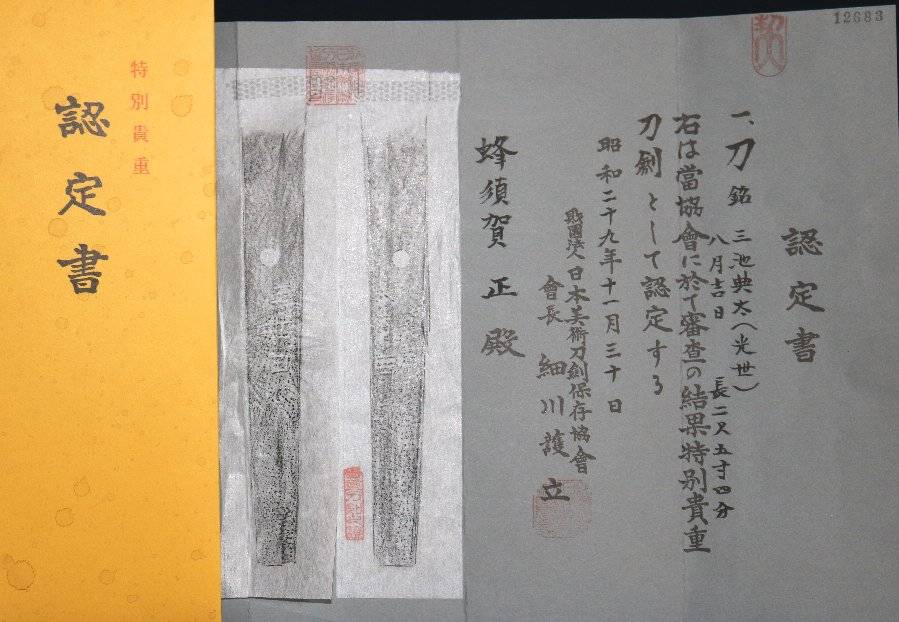 特別貴重
認定書
12683
認定書
一、刀 銘 三池典太(光世)
八月吉日 長二尺五寸四分
右は當協會に於て審査の結果特別貴重
刀劍として認定する
昭和二十九年十一月三十日
財團法人日本美術刀劍保存協會
會長 細川護立
蜂須賀正殿